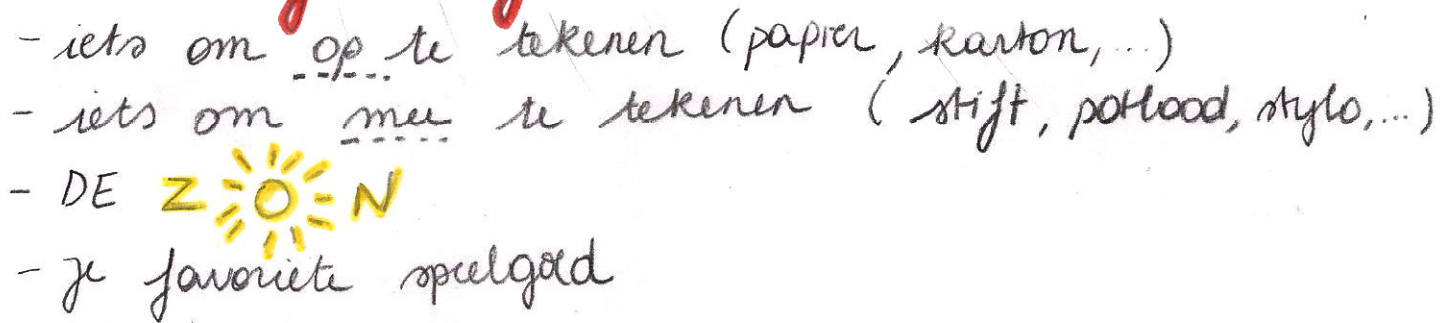 - iets om op te tekenen (papier, karton,...)
- iets om mee te tekenen (stift, potlood, stylo,...)
- DE ZON
- je favoriete speelgoed